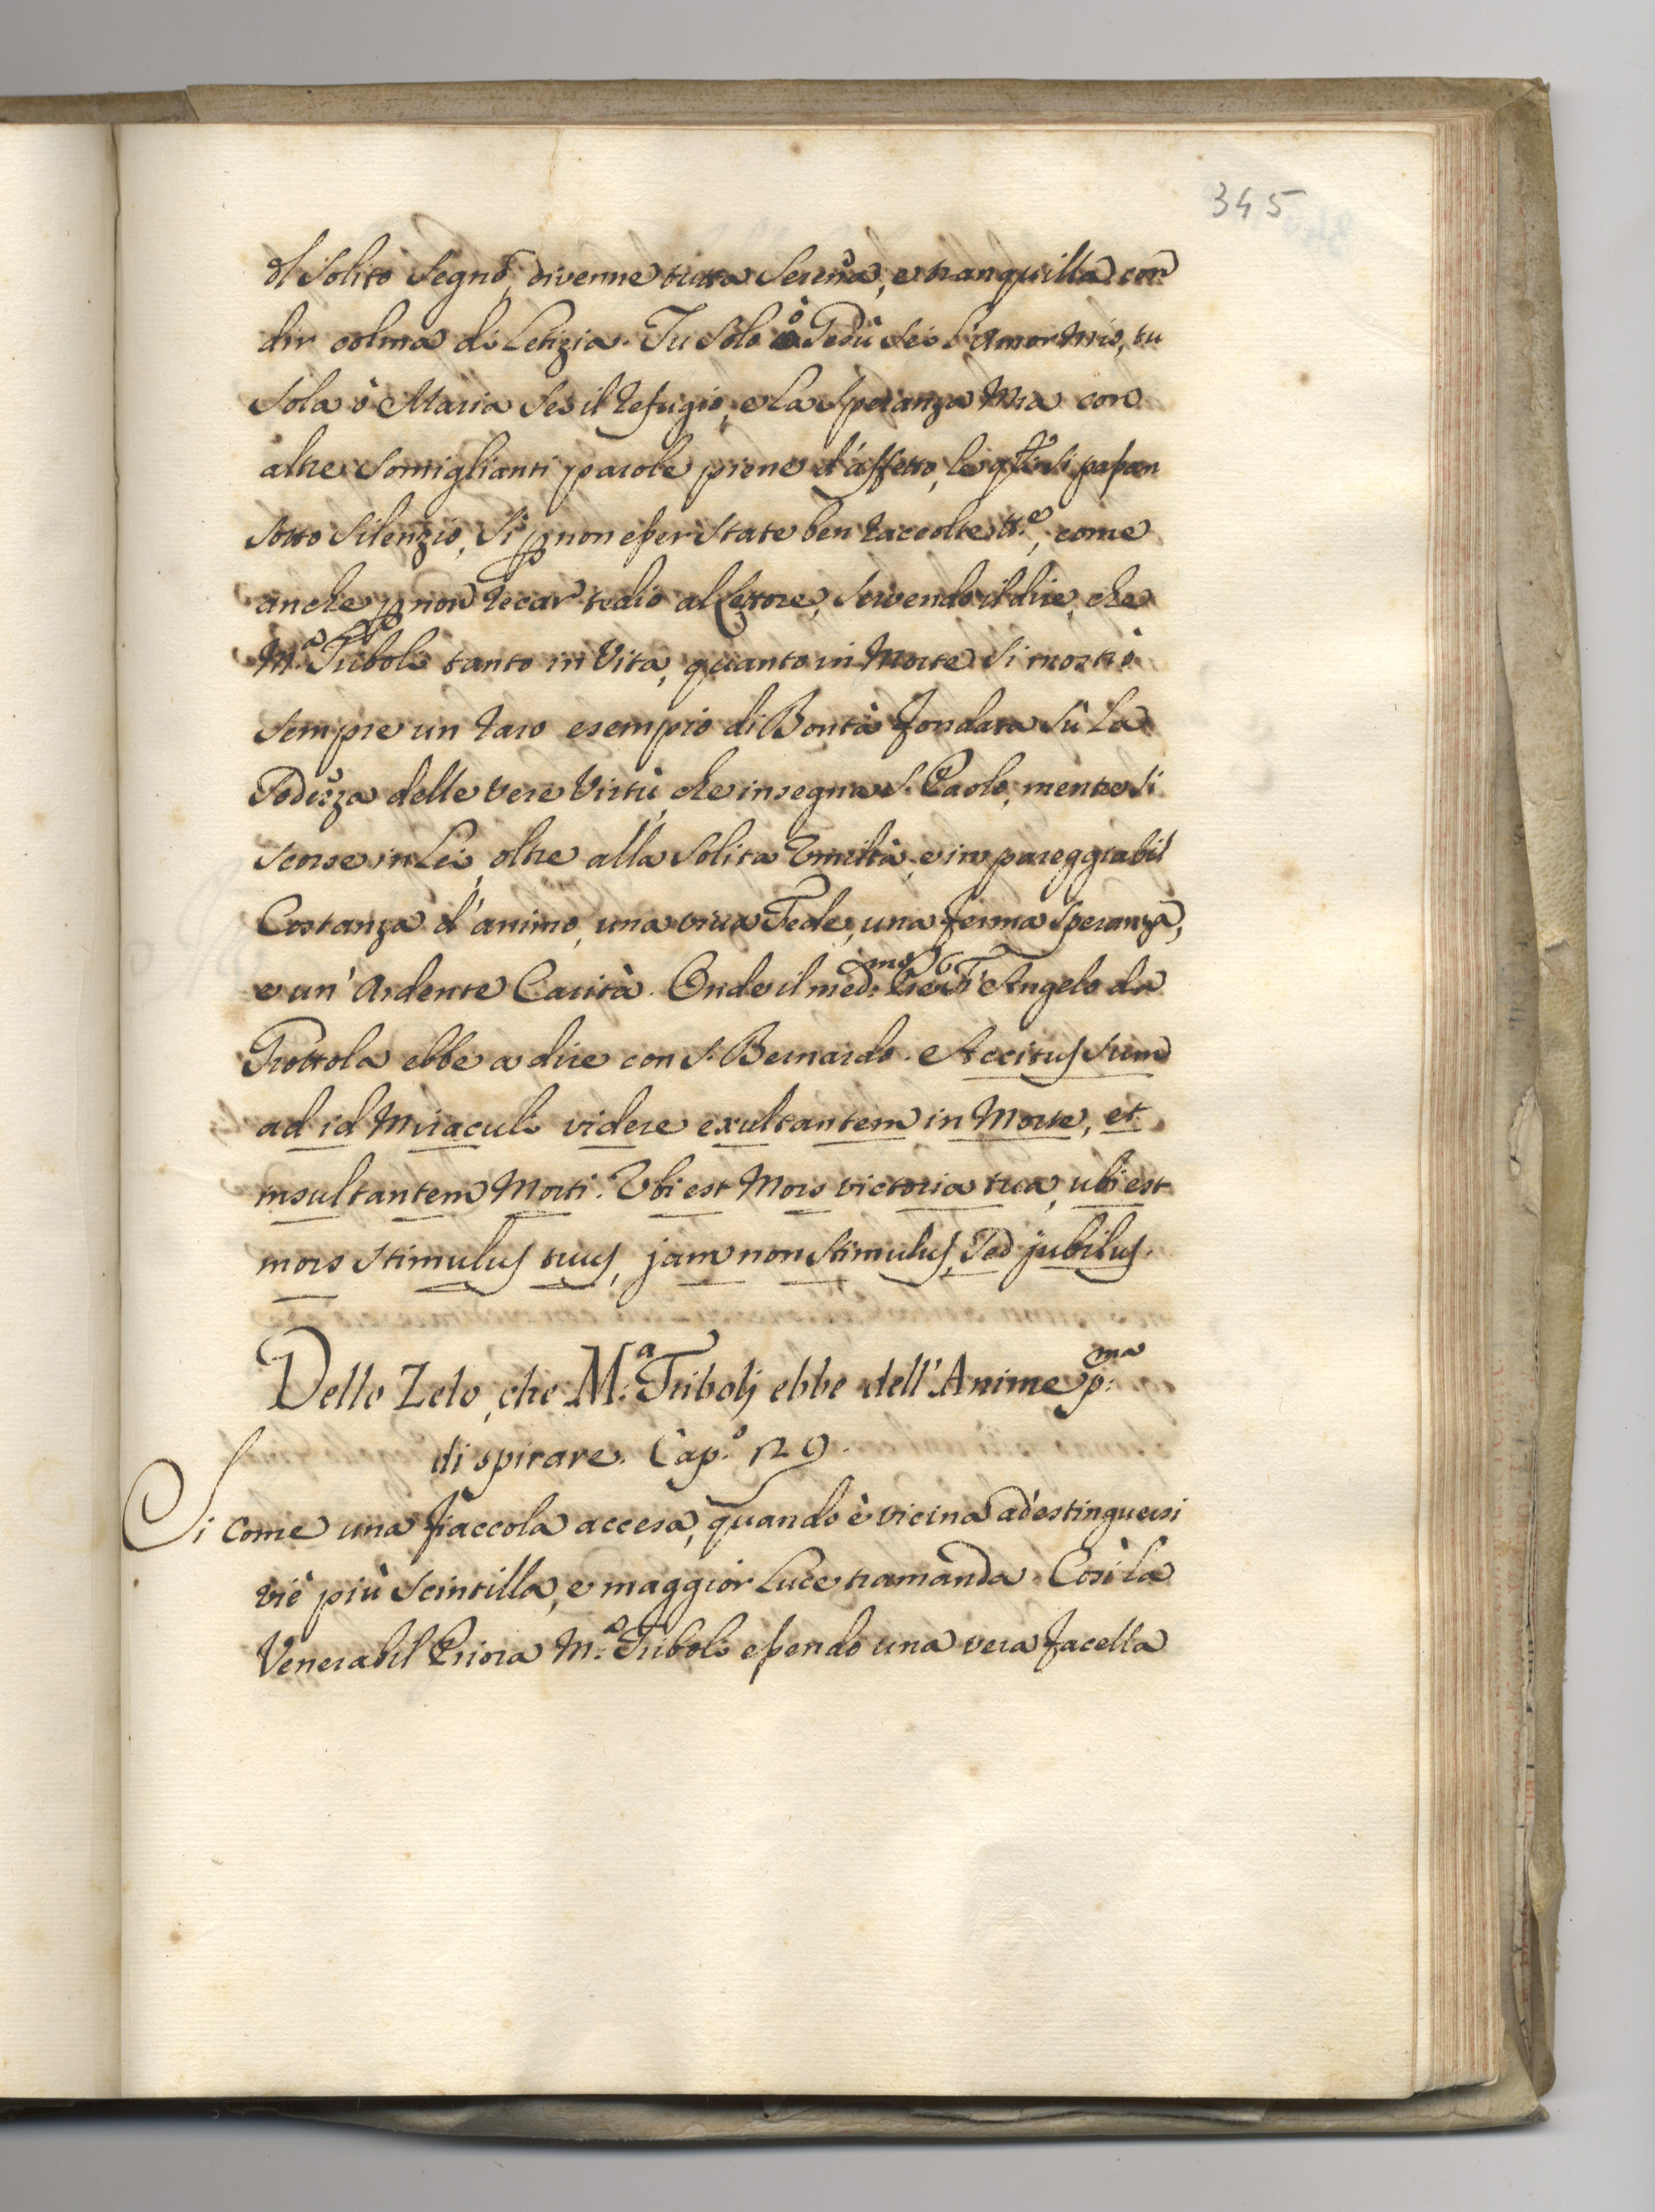 345
Il solito Segno, divenne tutta Serena, e tranquilla con
dir colma di Letizia. Tu solo ò Gesù sei l'Amor Mio, tu
sola ò Maria sei il Refugio, e La Speranza Mia con
altre somiglianti parole piene d'affetto, le si passan
sotto silenzio, si p non esser state ben raccolte tt.e, come
anche p non recar tedio al Lettore, servendo il dire, che
M.a Triboli tanto in Vita, quanto in Morte si mostrò
sempre un raro esempio di Bontà fondata sù la
Sodezza delle vere Virtù, che insegna S. Paolo, mentre si
scorse in Lei, oltre alla solita Umiltà, e impareggiabil
Costanza d'animo, una viva Fede, una ferma Speranza,
e un' Ardente Carità. Onde il med.mo Pre F. Angelo da
Grottola ebbe a dire con S. Bernardo. Accitus sum
ad id Miraculi videre exultantem in Morte, et
insultantem Morti. Ubi est Mors victoria tua, ubi est
mors stimulus tuus, jam non stimulus, Sed jubilus.
Dello Zelo, che M.a Tribolj ebbe dell'Anime p.ma
di spirare. Cap.o 129.
Si come una fiaccola accesa, quando è vicina ad'estinguersi
viè più scintilla, e maggior Luce tramanda. Così la
Venerabil Priora M.a Triboli essendo una vera facella